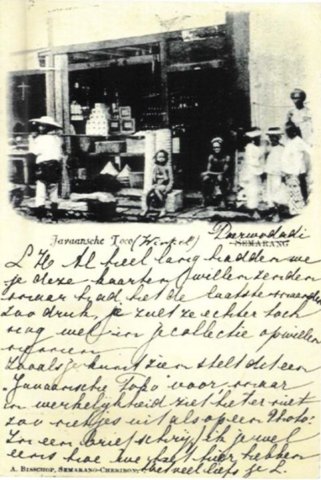 Javaansche Toco (Winkel) Poerwodadi
SEMARANG
L Ho Al heel lang hadden we
je deze kaarten willen zenden
maar had het de laatste maanden
zoo druk, je zult ze echter toch
nog wel in je collectie op willen
nemen
zooals je kunt zien stelt dit een
"Javaansche Toko" voor maar
in werkelijkheid ziet het er niet
zoo netjes uit als op een Photo.
In een brief schrijf ik je wel
eens hoe we het hier hebben
A. BISSCHOP, SEMARANG-CHERIBON, het veel liefs je L.